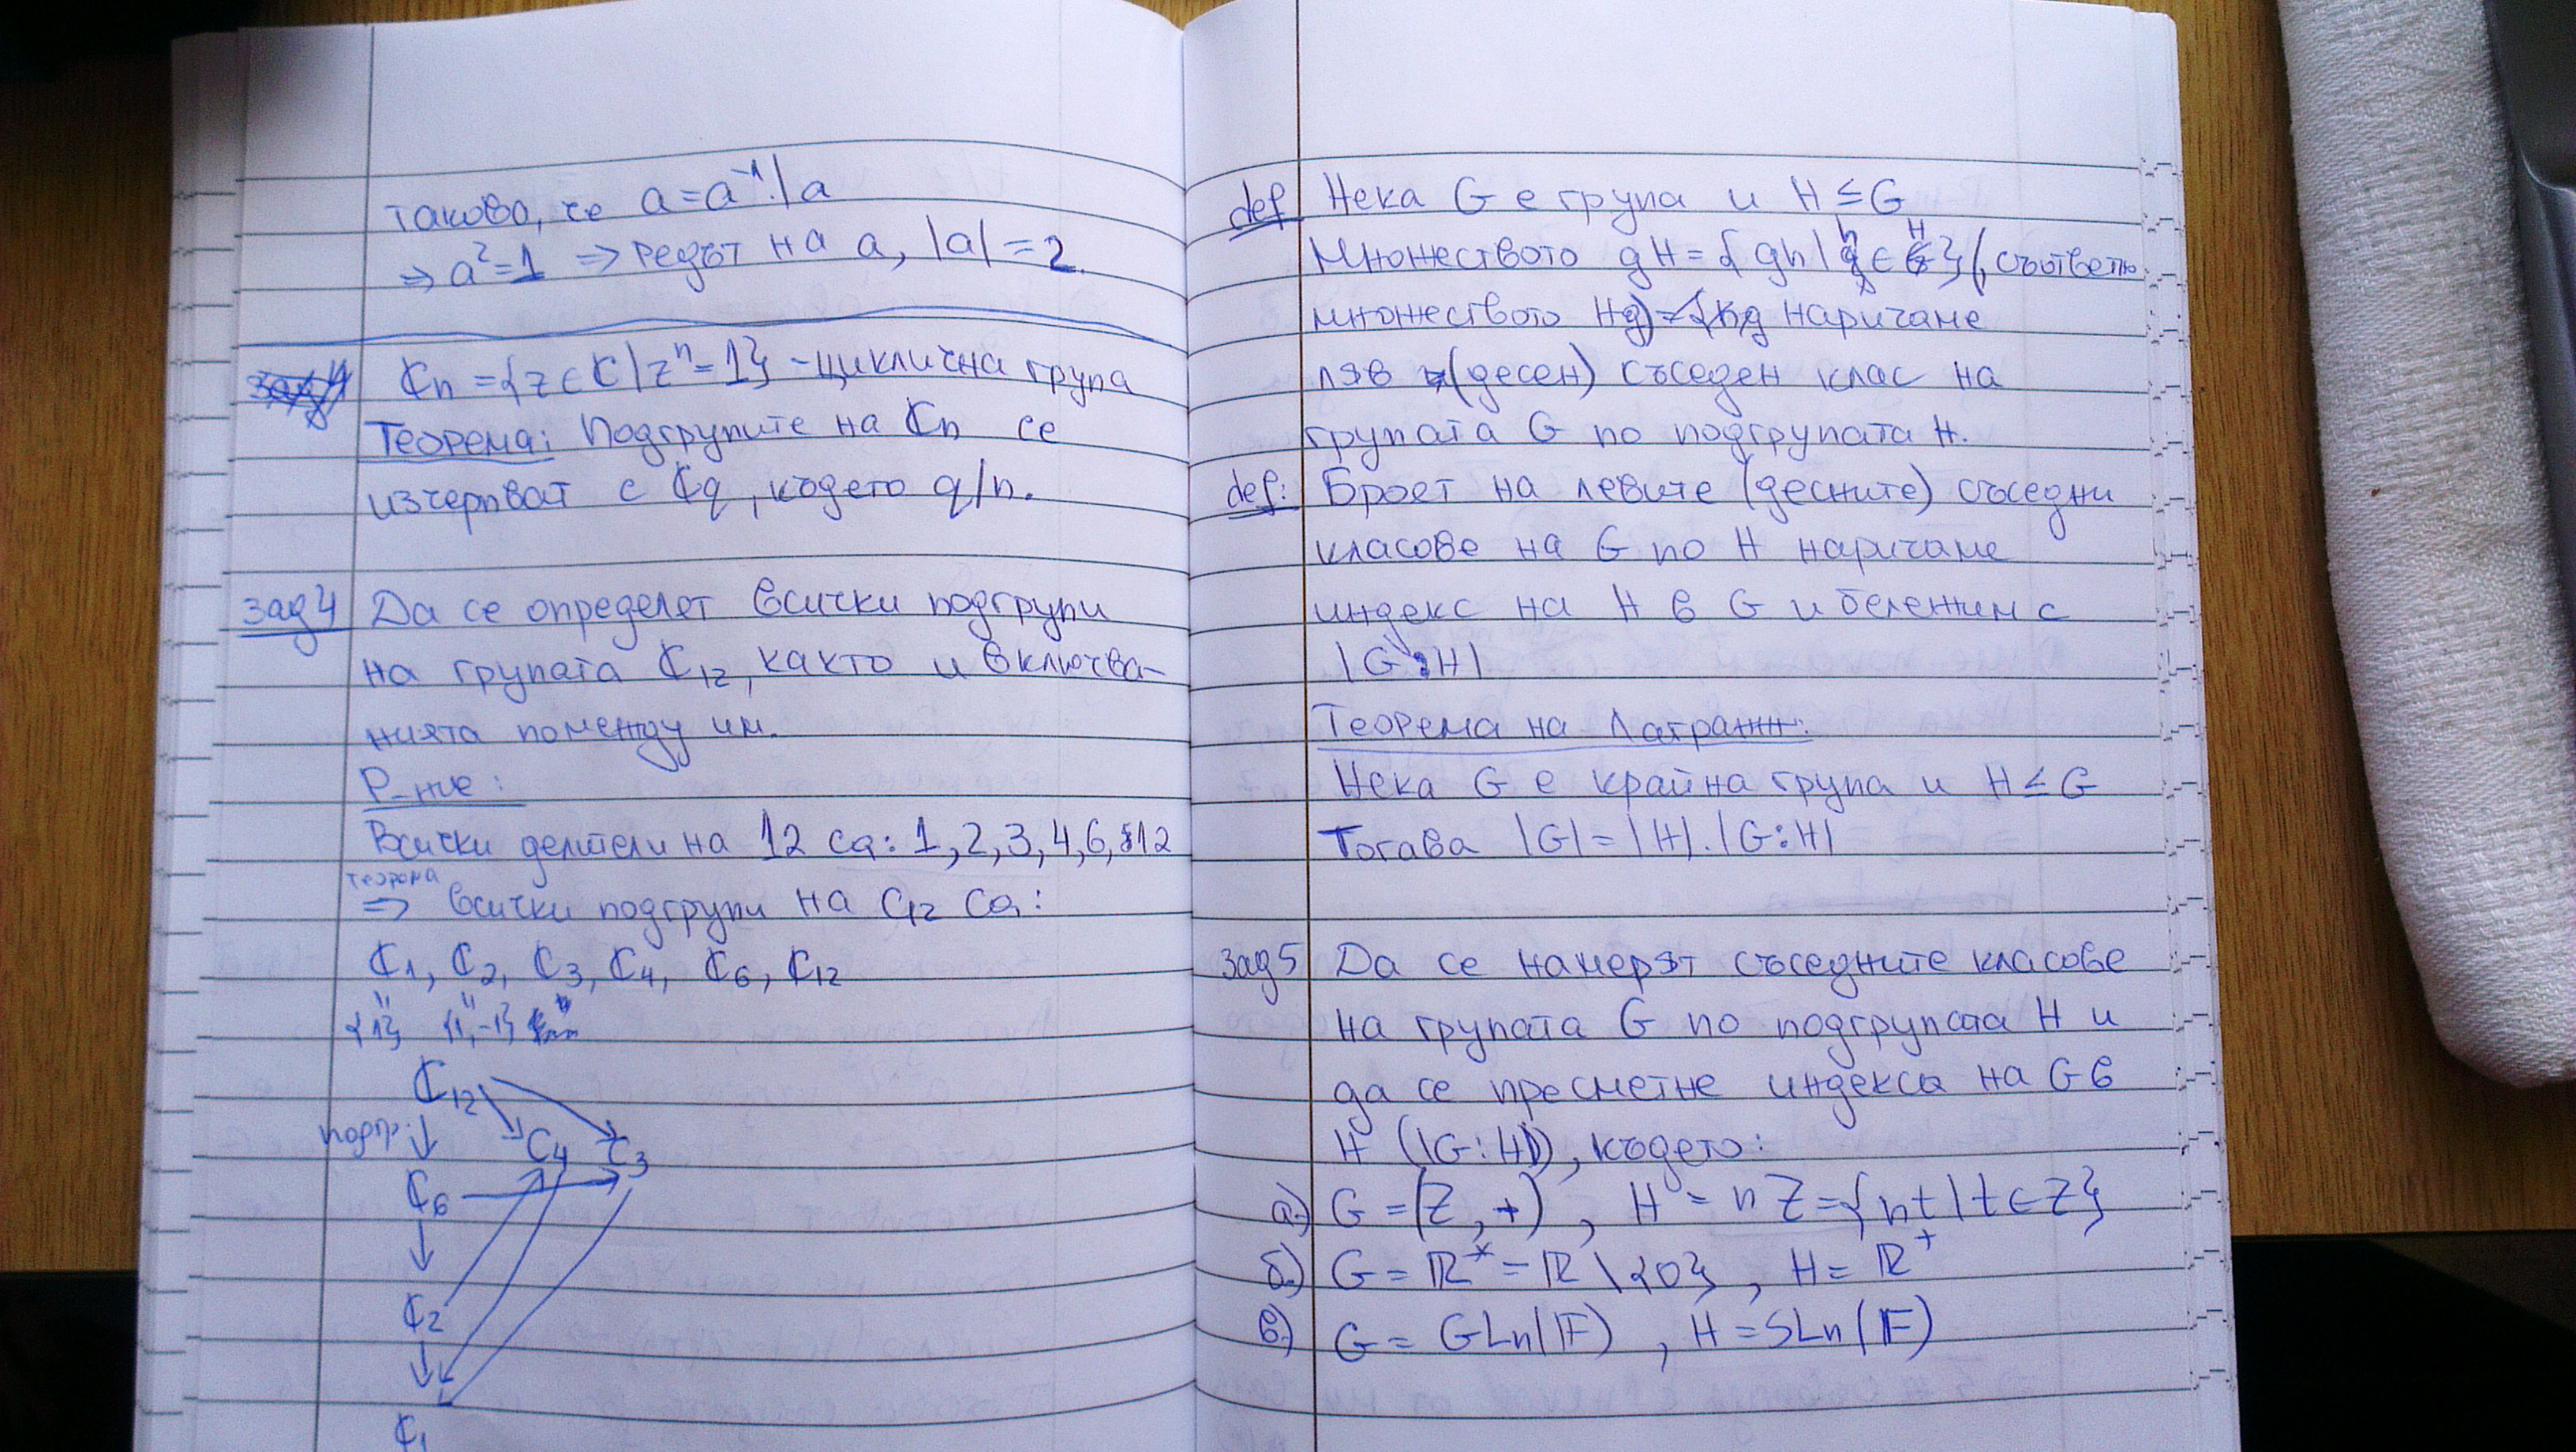 такова, че a = a⁻¹ ./a
⇒ a² = 1 ⇒ редът на a, |a| = 2.
ℂn = {z ∈ ℂ | zⁿ = 1} - циклична група
Теорема: Подгрупите на ℂn се
изчерпват с ℂq, където q/n.
зад 4 Да се определят всички подгрупи
на групата ℂ12, както и включва-
нията помежду им.
Р-ние:
Всички делители на 12 са: 1, 2, 3, 4, 6, 12
теорема
⇒ всички подгрупи на C12 са:
ℂ1, ℂ2, ℂ3, ℂ4, ℂ6, ℂ12
{1} {1, -1}
ℂ12
подгр. ↓ C4 ℂ3
ℂ6
↓
ℂ2
↓
ℂ1
def Нека G е група и H ≤ G
Множеството gH = {gh | h ∈ H} (, съответно
множеството Hg) наричаме
ляв (десен) съседен клас на
групата G по подгрупата H.
def: Броят на левите (десните) съседни
класове на G по H наричаме
индекс на H в G и бележим с
|G:H|
Теорема на Лагранж:
Нека G е крайна група и H ≤ G
Тогава |G| = |H| . |G:H|
зад 5 Да се намерят съседните класове
на групата G по подгрупата H и
да се пресметне индекса на G в
H (|G:H|), където:
а.) G = (Z, +), H = nZ = {nt | t ∈ Z}
б.) G = ℝ* = ℝ \ {0}, H = ℝ⁺
в.) G = GLn(F), H = SLn(F)